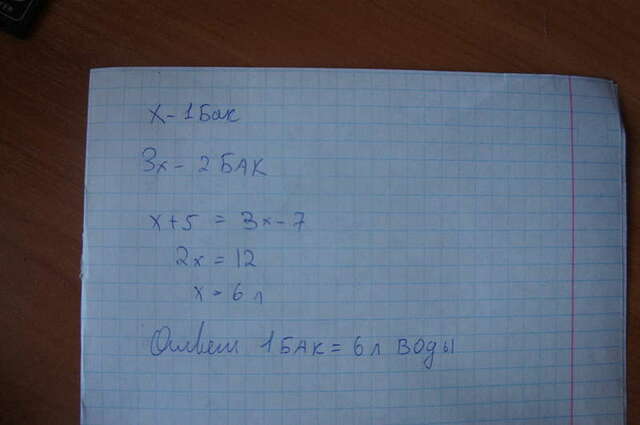 x - 1 Бак
3x - 2 БАК
x + 5 = 3x - 7
2x = 12
x = 6 л
Ответ 1 БАК = 6 л воды